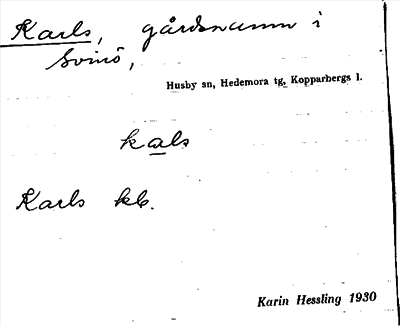 Karls, gårdsnamn i
Svinö,
Husby sn, Hedemora tg, Kopparbergs l.
kals
Karls kb.
Karin Hessling 1930